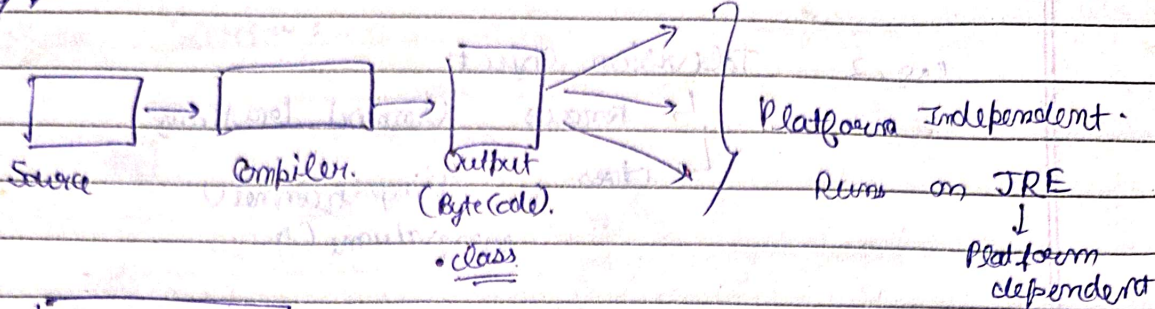 Source
Compiler.
Output
(ByteCode).
.class
Platform Independent.
Runs on JRE
Platform
dependent